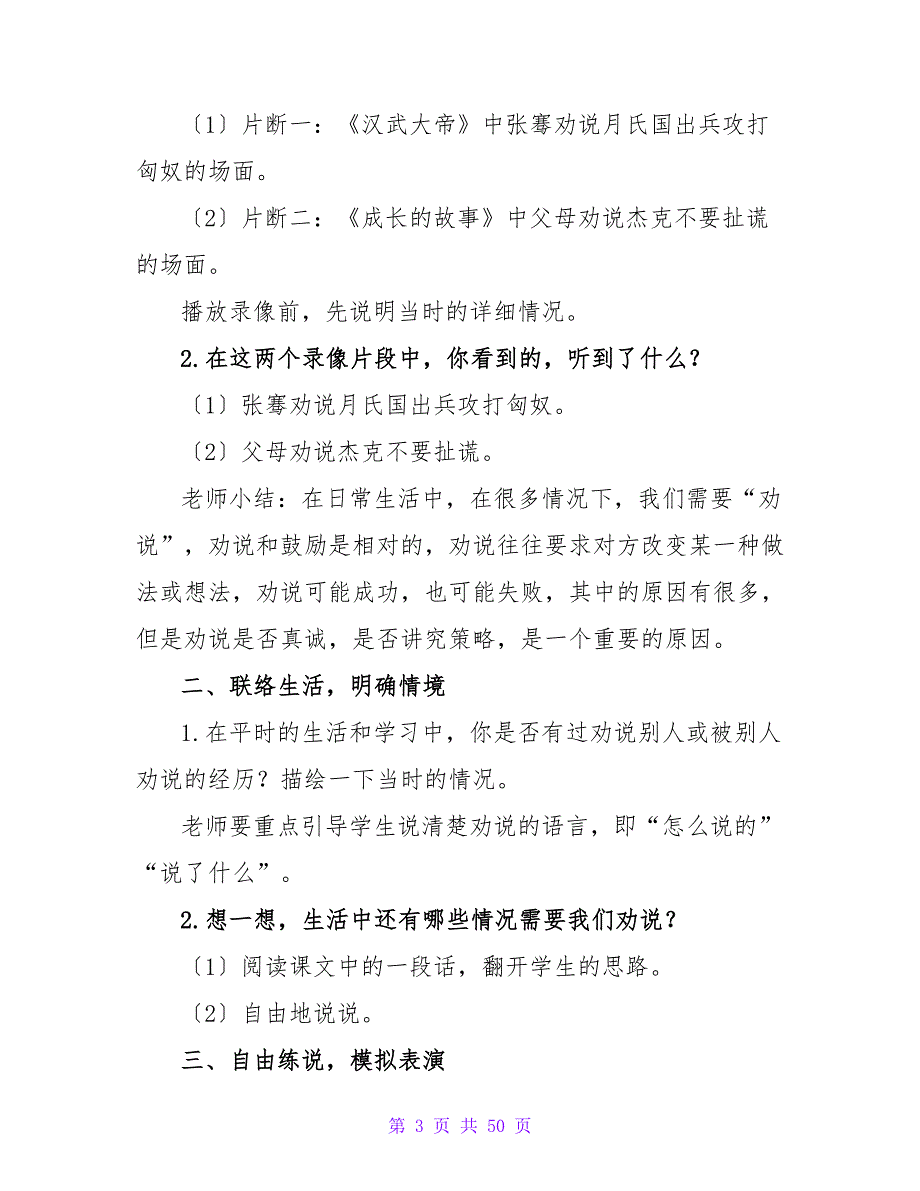 〔1〕片断一：《汉武大帝》中张骞劝说月氏国出兵攻打
匈奴的场面。
〔2〕片断二：《成长的故事》中父母劝说杰克不要扯谎
的场面。
播放录像前，先说明当时的详细情况。
2.在这两个录像片段中，你看到的，听到了什么？
〔1〕张骞劝说月氏国出兵攻打匈奴。
〔2〕父母劝说杰克不要扯谎。
老师小结：在日常生活中，在很多情况下，我们需要“劝
说”，劝说和鼓励是相对的，劝说往往要求对方改变某一种做
法或想法，劝说可能成功，也可能失败，其中的原因有很多，
但是劝说是否真诚，是否讲究策略，是一个重要的原因。
二、联络生活，明确情境
1.在平时的生活和学习中，你是否有过劝说别人或被别人
劝说的经历？描绘一下当时的情况。
老师要重点引导学生说清楚劝说的语言，即“怎么说的”
“说了什么”。
2.想一想，生活中还有哪些情况需要我们劝说？
〔1〕阅读课文中的一段话，翻开学生的思路。
〔2〕自由地说说。
三、自由练说，模拟表演
第 3 页 共 50 页